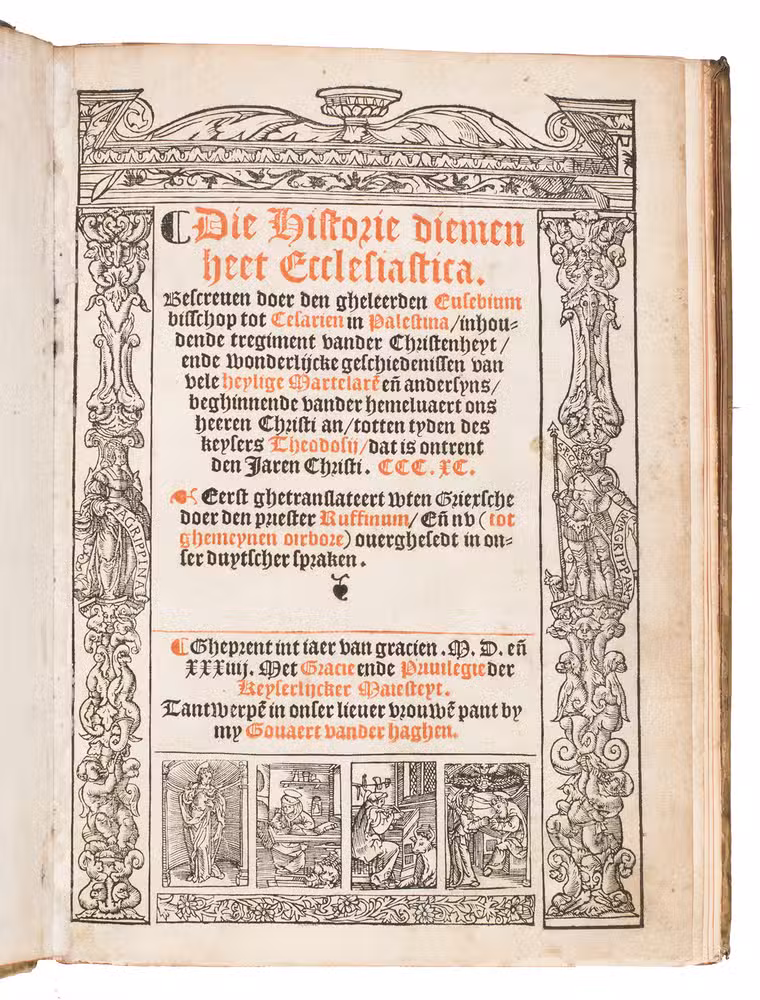 Die Historie diemen
heet Ecclesiastica.
Bescreuen doer den gheleerden Eusebium
bisschop tot Cesarien in Palestina/inhou=
dende tregiment vander Christenheyt/
ende wonderlijcke geschiedenissen van
vele heylige Martelarē eñ andersyns/
beghinnende vander hemeluaert ons
heeren Christi an/totten tyden des
keysers Theodosij/dat is ontrent
den Jaren Christi. CCC.XC.
Eerst ghetranslateert wten Griexsche
doer den priester Ruffinum/Eñ nv (tot
ghemeynen oirbore) ouerghesedt in on=
ser duytscher spraken.
Gheprent int iaer van gracien .M. D. eñ
XXXiiij. Met Gracie ende Priuilegie der
Keyserlijcker Maiesteyt.
Tantwerpē in onser lieuer vrouwē pant by
my Gouaert vander haghen.
AGRIPPINA